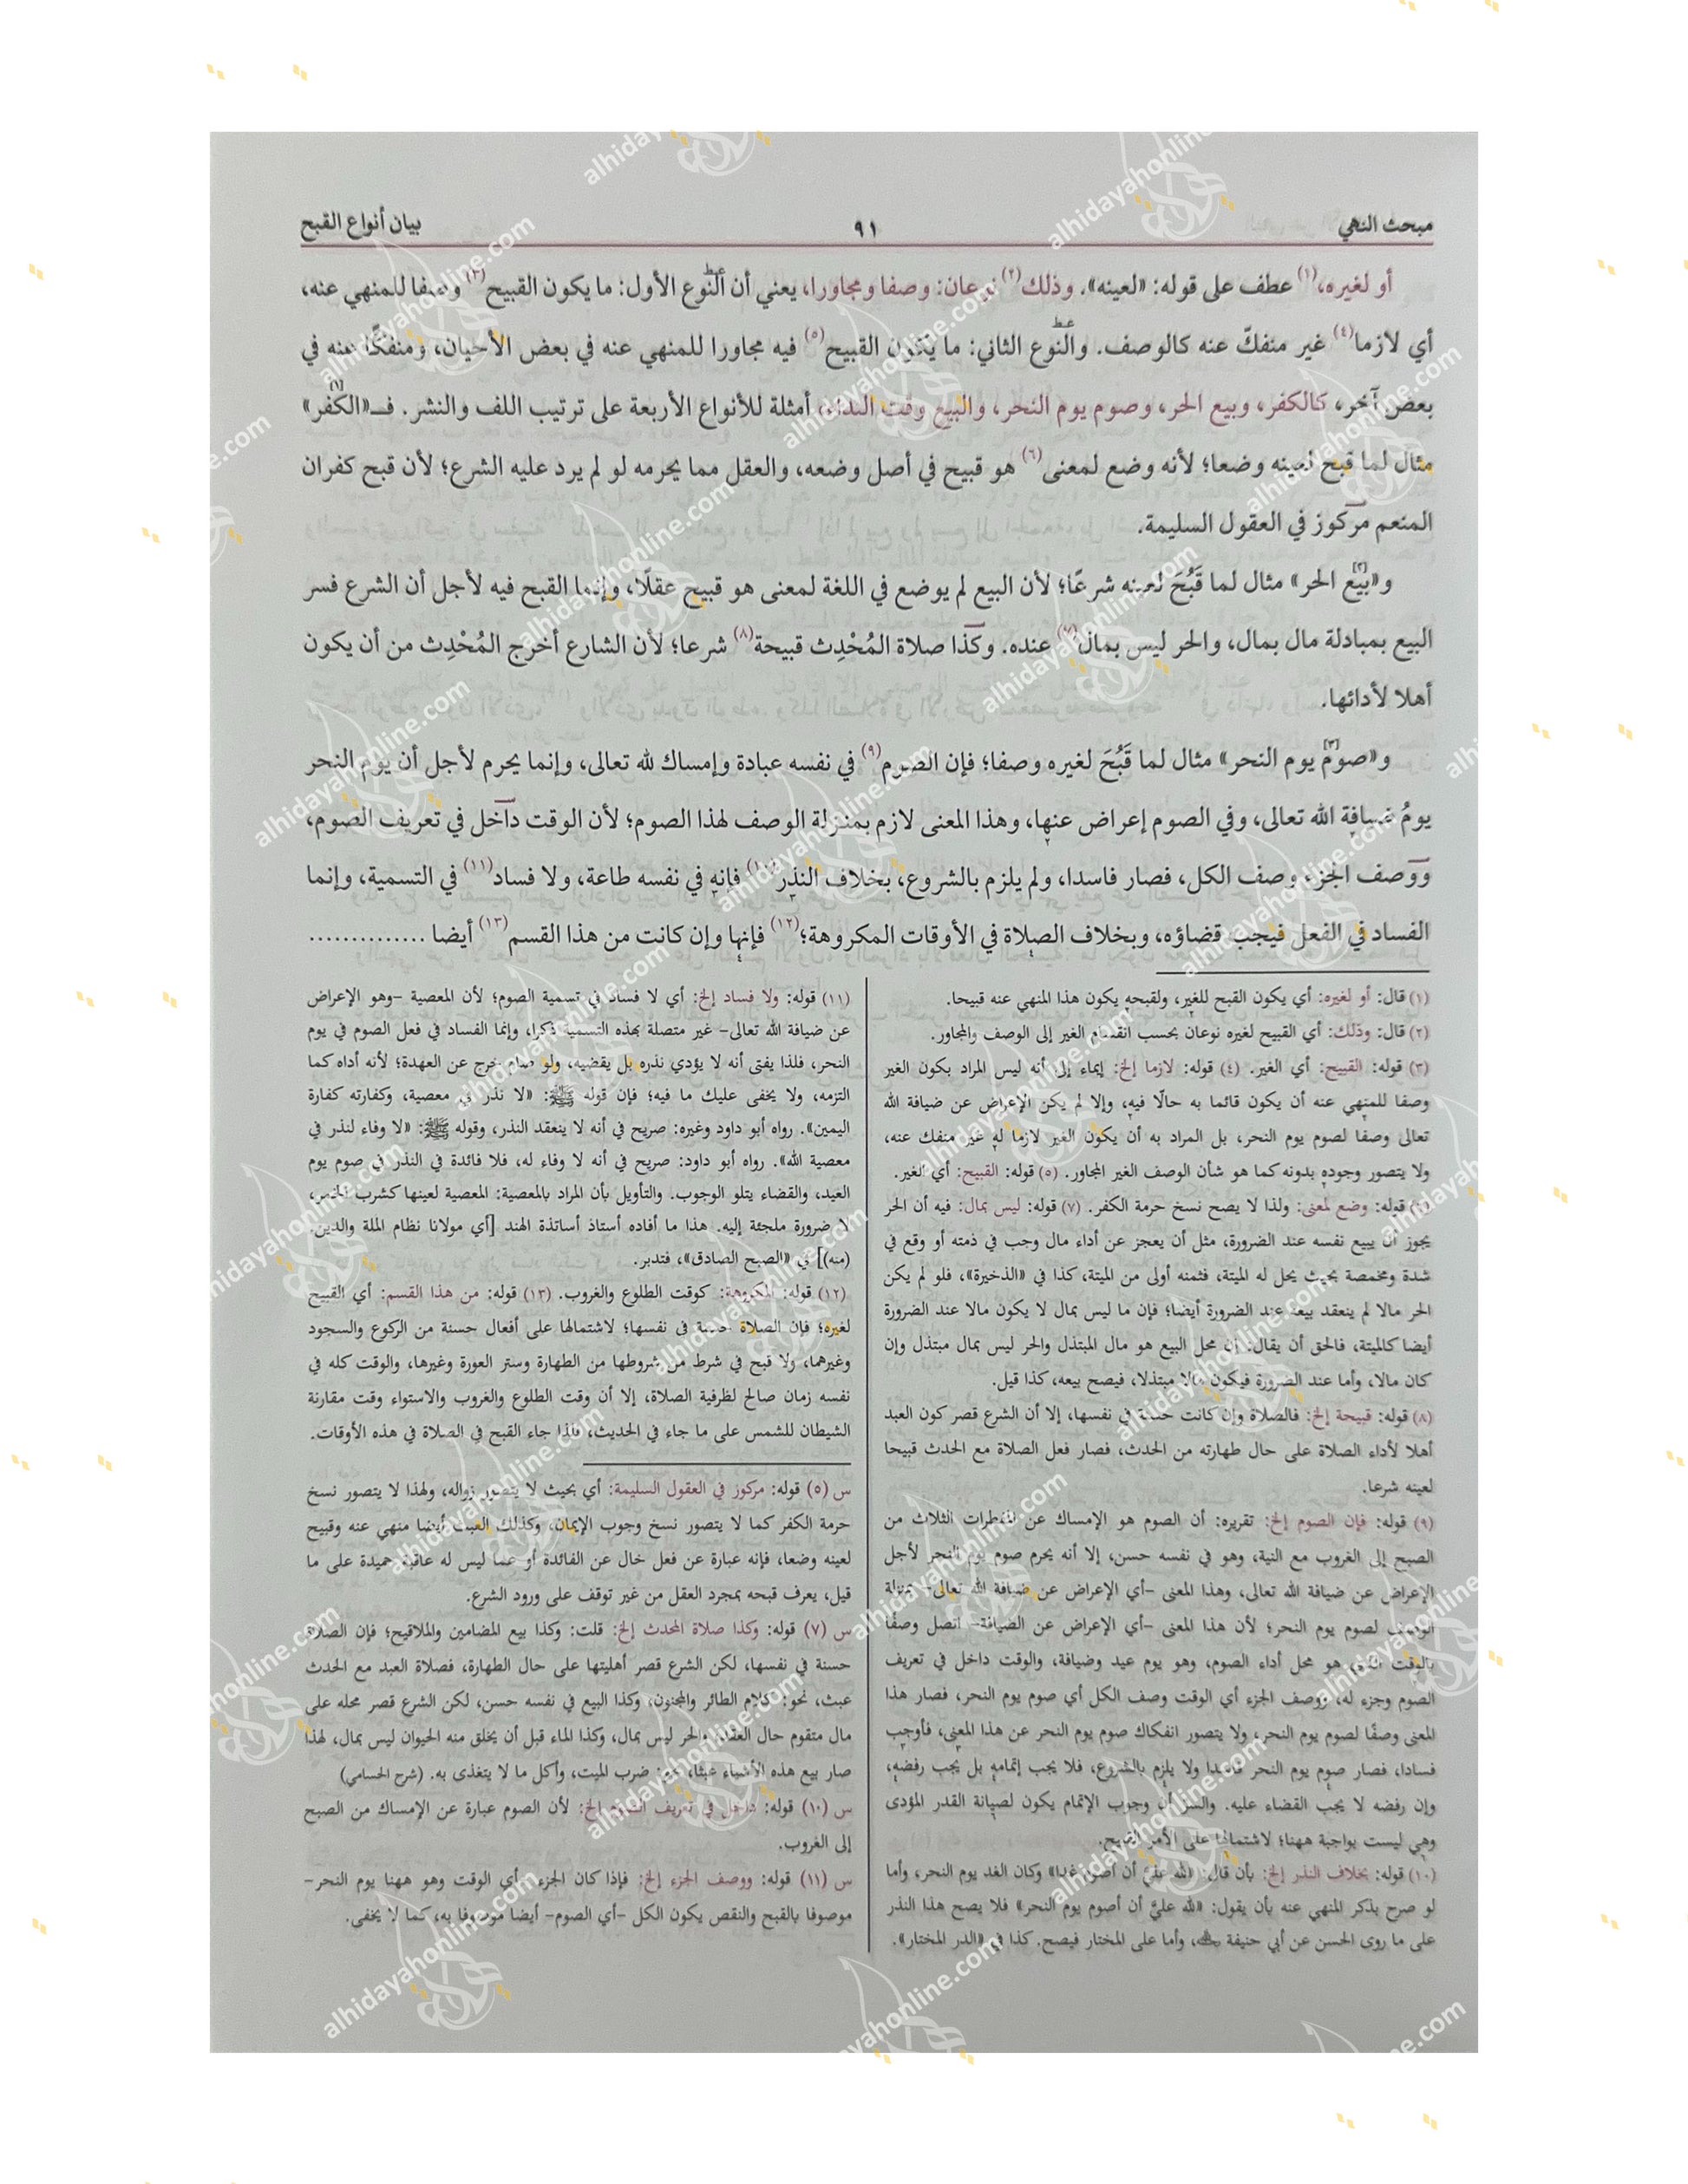 مبحث النهي ٩١ بيان أنواع القبح
أو لغيره،(١) عطف على قوله: «لعينه». وذلك(٢) نوعان: وصفا ومجاورا، يعني أن النوع الأول: ما يكون القبيح(٣) وصفا للمنهي عنه،
أي لازما(٤) غير منفكّ عنه كالوصف. والنوع الثاني: ما يكون القبيح(٥) فيه مجاورا للمنهي عنه في بعض الأحيان، ومنفكًّا عنه في
بعض آخر، كالكفر، وبيع الحر، وصوم يوم النحر، والبيع وقت النداء، أمثلة للأنواع الأربعة على ترتيب اللف والنشر. فـ«الكفر»[١]
مثال لما قبح لعينه وضعا؛ لأنه وضع لمعنى(٦) هو قبيح في أصل وضعه، والعقل مما يحرمه لو لم يرد عليه الشرع؛ لأن قبح كفران
المنعم مركوز في العقول السليمة.
و«بيع[٢] الحر» مثال لما قَبُحَ لعينه شرعًا؛ لأن البيع لم يوضع في اللغة لمعنى هو قبيح عقلًا، وإنما القبح فيه لأجل أن الشرع فسر
البيع بمبادلة مال بمال، والحر ليس بمال(٧) عنده. وكذا صلاة المُحْدِث قبيحة(٨) شرعا؛ لأن الشارع أخرج المُحْدِث من أن يكون
أهلا لأدائها.
و«صوم[٣] يوم النحر» مثال لما قَبُحَ لغيره وصفا؛ فإن الصوم(٩) في نفسه عبادة وإمساك لله تعالى، وإنما يحرم لأجل أن يوم النحر
يومُ ضيافة الله تعالى، وفي الصوم إعراض عنها، وهذا المعنى لازم بمنزلة الوصف لهذا الصوم؛ لأن الوقت داخل في تعريف الصوم،
ووصف الجزء وصف الكل، فصار فاسدا، ولم يلزم بالشروع، بخلاف النذر(١٠) فإنه في نفسه طاعة، ولا فساد(١١) في التسمية، وإنما
الفساد في الفعل فيجب قضاؤه، وبخلاف الصلاة في الأوقات المكروهة؛(١٢) فإنها وإن كانت من هذا القسم(١٣) أيضا ..............
(١) قال: أو لغيره: أي يكون القبح للغير، ولقبحه يكون هذا المنهي عنه قبيحا.
(٢) قال: وذلك: أي القبيح لغيره نوعان بحسب انقسام الغير إلى الوصف والمجاور.
(٣) قوله: القبيح: أي الغير. (٤) قوله: لازما إلخ: إيماء إلى أنه ليس المراد بكون الغير
وصفا للمنهي عنه أن يكون قائما به حالّا فيه، وإلا لم يكن الإعراض عن ضيافة الله
تعالى وصفا لصوم يوم النحر، بل المراد به أن يكون الغير لازما له غير منفك عنه،
ولا يتصور وجوده بدونه كما هو شأن الوصف الغير المجاور. (٥) قوله: القبيح: أي الغير.
(٦) قوله: وضع لمعنى: ولذا لا يصح نسخ حرمة الكفر. (٧) قوله: ليس بمال: فيه أن الحر
يجوز أن يبيع نفسه عند الضرورة، مثل أن يعجز عن أداء مال وجب في ذمته أو وقع في
شدة ومخمصة بحيث يحل له الميتة، فثمنه أولى من الميتة، كذا في «الذخيرة»، فلو لم يكن
الحر مالا لم ينعقد بيعه عند الضرورة أيضا؛ فإن ما ليس بمال لا يكون مالا عند الضرورة
أيضا كالميتة، فالحق أن يقال: إن محل البيع هو مال المبتذل والحر ليس بمال مبتذل وإن
كان مالا، وأما عند الضرورة فيكون مالا مبتذلا، فيصح بيعه، كذا قيل.
(٨) قوله: قبيحة إلخ: فالصلاة وإن كانت حسنة في نفسها، إلا أن الشرع قصر كون العبد
أهلا لأداء الصلاة على حال طهارته من الحدث، فصار فعل الصلاة مع الحدث قبيحا
لعينه شرعا.
(٩) قوله: فإن الصوم إلخ: تقريره: أن الصوم هو الإمساك عن المفطرات الثلاث من
الصبح إلى الغروب مع النية، وهو في نفسه حسن، إلا أنه يحرم صوم يوم النحر لأجل
الإعراض عن ضيافة الله تعالى، وهذا المعنى -أي الإعراض عن ضيافة الله تعالى- بمنزلة
الوصف لصوم يوم النحر؛ لأن هذا المعنى -أي الإعراض عن الضيافة- اتصل وصفًا
بالوقت الذي هو محل أداء الصوم، وهو يوم عيد وضيافة، والوقت داخل في تعريف
الصوم وجزء له، ووصف الجزء أي الوقت وصف الكل أي صوم يوم النحر، فصار هذا
المعنى وصفًا لصوم يوم النحر، ولا يتصور انفكاك صوم يوم النحر عن هذا المعنى، فأوجب
فسادا، فصار صوم يوم النحر فاسدا ولا يلزم بالشروع، فلا يجب إتمامه بل يجب رفضه،
وإن رفضه لا يجب القضاء عليه. والسر أن وجوب الإتمام يكون لصيانة القدر المؤدى
وهي ليست بواجبة ههنا؛ لاشتمالها على الأمر القبيح.
(١٠) قوله: بخلاف النذر إلخ: بأن قال: «لله عليّ أن أصوم غدا» وكان الغد يوم النحر، وأما
لو صرح بذكر المنهي عنه بأن يقول: «لله عليّ أن أصوم يوم النحر» فلا يصح هذا النذر
على ما روى الحسن عن أبي حنيفة رحمه الله، وأما على المختار فيصح. كذا في «الدر المختار».
(١١) قوله: ولا فساد إلخ: أي لا فساد في تسمية الصوم؛ لأن المعصية -وهو الإعراض
عن ضيافة الله تعالى- غير متصلة بهذه التسمية ذكرا، وإنما الفساد في فعل الصوم في يوم
النحر، فلذا يفتى أنه لا يؤدي نذره بل يقضيه، ولو صام يخرج عن العهدة؛ لأنه أداه كما
التزمه، ولا يخفى عليك ما فيه؛ فإن قوله ﷺ: «لا نذر في معصية، وكفارته كفارة
اليمين». رواه أبو داود وغيره: صريح في أنه لا ينعقد النذر، وقوله ﷺ: «لا وفاء لنذر في
معصية الله». رواه أبو داود: صريح في أنه لا وفاء له، فلا فائدة في النذر في صوم يوم
العيد، والقضاء يتلو الوجوب. والتأويل بأن المراد بالمعصية: المعصية لعينها كشرب الخمر،
لا ضرورة ملجئة إليه. هذا ما أفاده أستاذ أساتذة الهند [أي مولانا نظام الملة والدين.
(منه)] في «الصبح الصادق»، فتدبر.
(١٢) قوله: المكروهة: كوقت الطلوع والغروب. (١٣) قوله: من هذا القسم: أي القبيح
لغيره؛ فإن الصلاة حسنة في نفسها؛ لاشتمالها على أفعال حسنة من الركوع والسجود
وغيرهما، ولا قبح في شرط من شروطها من الطهارة وستر العورة وغيرها، والوقت كله في
نفسه زمان صالح لظرفية الصلاة، إلا أن وقت الطلوع والغروب والاستواء وقت مقارنة
الشيطان للشمس على ما جاء في الحديث، فلذا جاء القبح في الصلاة في هذه الأوقات.
س (٥) قوله: مركوز في العقول السليمة: أي بحيث لا يتصور زواله، ولهذا لا يتصور نسخ
حرمة الكفر كما لا يتصور نسخ وجوب الإيمان، وكذلك العبث أيضا منهي عنه وقبيح
لعينه وضعا، فإنه عبارة عن فعل خال عن الفائدة أو عما ليس له عاقبة حميدة على ما
قيل، يعرف قبحه بمجرد العقل من غير توقف على ورود الشرع.
س (٧) قوله: وكذا صلاة المحدث إلخ: قلت: وكذا بيع المضامين والملاقيح؛ فإن الصلاة
حسنة في نفسها، لكن الشرع قصر أهليتها على حال الطهارة، فصلاة العبد مع الحدث
عبث، نحو: كلام الطائر والمجنون، وكذا البيع في نفسه حسن، لكن الشرع قصر محله على
مال متقوم حال العقد، والحر ليس بمال، وكذا الماء قبل أن يخلق منه الحيوان ليس بمال، لهذا
صار بيع هذه الأشياء عبثًا، نحو: ضرب الميت، وأكل ما لا يتغذى به. (شرح الحسامي)
س (١٠) قوله: داخل في تعريف الصوم إلخ: لأن الصوم عبارة عن الإمساك من الصبح
إلى الغروب.
س (١١) قوله: ووصف الجزء إلخ: فإذا كان الجزء -أي الوقت وهو ههنا يوم النحر-
موصوفا بالقبح والنقص يكون الكل -أي الصوم- أيضا موصوفا به، كما لا يخفى.
alhidayahonline.com